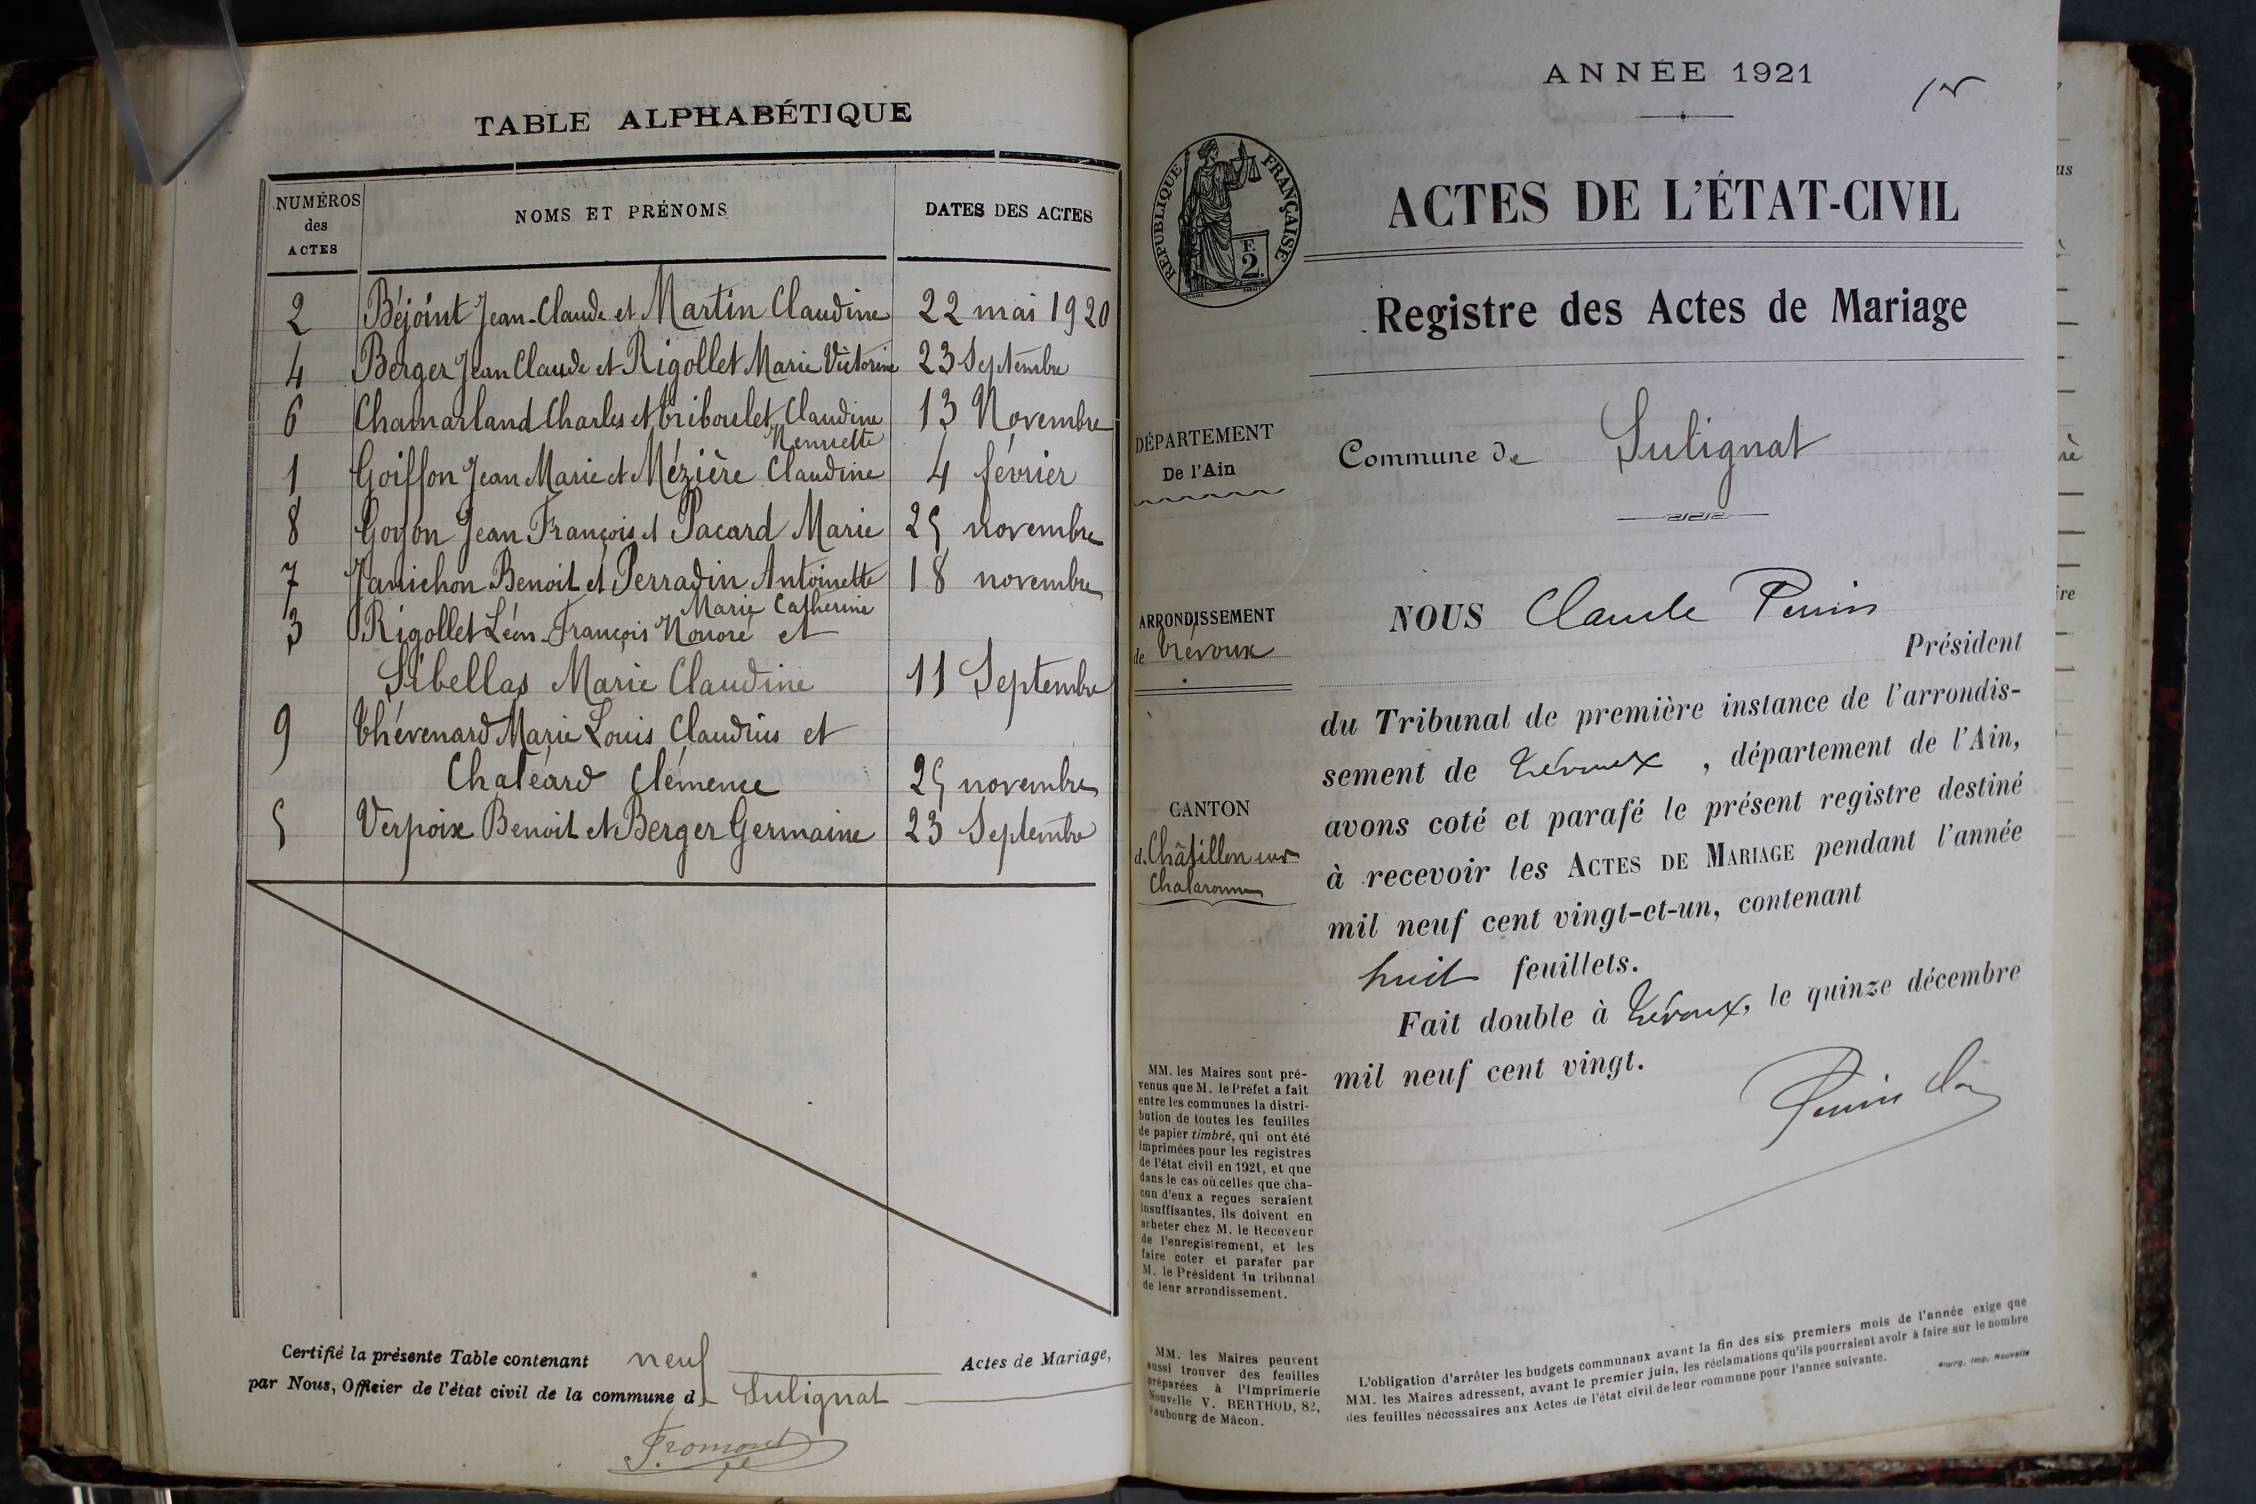 TABLE ALPHABÉTIQUE
NUMÉROS des ACTES NOMS ET PRÉNOMS DATES DES ACTES
2 Béjoint Jean-Claude et Martin Claudine 22 mai 1920
4 Berger Jean Claude et Rigollet Marie Victorine 23 Septembre
6 Chamarland Charles et Triboulet Claudine 13 Novembre
Henriette
1 Goiffon Jean Marie et Mézière Claudine 4 février
8 Goyon Jean François et Pacard Marie 25 novembre
7 Janichon Benoit et Perradin Antoinette 18 novembre
Marie Catherine
3 Rigollet Léon François Honoré et
Sibellas Marie Claudine 11 Septembre
9 Thévenard Marie Louis Claudius et
Chaléard Clémence 25 novembre
5 Verpoix Benoit et Berger Germaine 23 Septembre
Certifié la présente Table contenant neuf Actes de Mariage,
par Nous, Officier de l'état civil de la commune de Sulignat
Fromont
ANNÉE 1921
RÉPUBLIQUE FRANÇAISE
F.
2.
ACTES DE L'ÉTAT-CIVIL
Registre des Actes de Mariage
DÉPARTEMENT
De l'Ain
Commune de Sulignat
ARRONDISSEMENT
de Trévoux
CANTON
de Châtillon sur
Chalaronne
NOUS Claude Perrin
Président
du Tribunal de première instance de l'arrondis-
sement de Trévoux, département de l'Ain,
avons coté et parafé le présent registre destiné
à recevoir les ACTES DE MARIAGE pendant l'année
mil neuf cent vingt-et-un, contenant
huit feuillets.
Fait double à Trévoux, le quinze décembre
mil neuf cent vingt.
Perrin
MM. les Maires sont pré-
venus que M. le Préfet a fait
entre les communes la distri-
bution de toutes les feuilles
de papier timbré, qui ont été
imprimées pour les registres
de l'état civil en 1921, et que
dans le cas où celles que cha-
cun d'eux a reçues seraient
insuffisantes, ils doivent en
acheter chez M. le Receveur
de l'enregistrement, et les
faire coter et parafer par
M. le Président du tribunal
de leur arrondissement.
MM. les Maires peuvent
aussi trouver des feuilles
préparées à l'Imprimerie
Nouvelle V. BERTHOD, 82,
Faubourg de Mâcon.
L'obligation d'arrêter les budgets communaux avant la fin des six premiers mois de l'année exige que
MM. les Maires adressent, avant le premier juin, les réclamations qu'ils pourraient avoir à faire sur le nombre
des feuilles nécessaires aux Actes de l'état civil de leur commune pour l'année suivante.
Bourg, Imp. Nouvelle